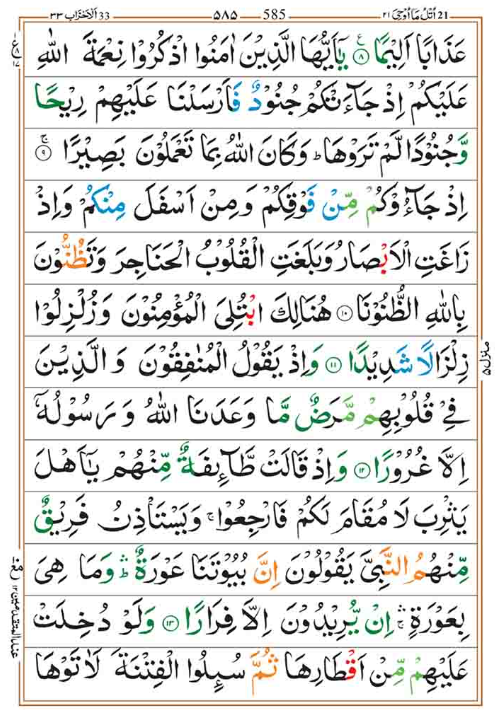 اُتْلُ مَاۤ اُوْحِیَ ٢١ 21 585 ٥٨٥ 33 اَلْاَحْزَاب ٣٣
عَذَابًا اَلِیْمًا ۝٨ یٰۤاَیُّهَا الَّذِیْنَ اٰمَنُوا اذْكُرُوْا نِعْمَةَ اللّٰهِ
عَلَیْكُمْ اِذْ جَآءَتْكُمْ جُنُوْدٌ فَاَرْسَلْنَا عَلَیْهِمْ رِیْحًا
وَّجُنُوْدًا لَّمْ تَرَوْهَا ؕ وَكَانَ اللّٰهُ بِمَا تَعْمَلُوْنَ بَصِیْرًا ۝٩
اِذْ جَآءُوْكُمْ مِّنْ فَوْقِكُمْ وَمِنْ اَسْفَلَ مِنْكُمْ وَاِذْ
زَاغَتِ الْاَبْصَارُ وَبَلَغَتِ الْقُلُوْبُ الْحَنَاجِرَ وَتَظُنُّوْنَ
بِاللّٰهِ الظُّنُوْنَا ۝١٠ هُنَالِكَ ابْتُلِیَ الْمُؤْمِنُوْنَ وَزُلْزِلُوْا
زِلْزَالًا شَدِیْدًا ۝١١ وَاِذْ یَقُوْلُ الْمُنٰفِقُوْنَ وَالَّذِیْنَ
فِیْ قُلُوْبِهِمْ مَّرَضٌ مَّا وَعَدَنَا اللّٰهُ وَرَسُوْلُهٗۤ
اِلَّا غُرُوْرًا ۝١٢ وَاِذْ قَالَتْ طَّآئِفَةٌ مِّنْهُمْ یٰۤاَهْلَ
یَثْرِبَ لَا مُقَامَ لَكُمْ فَارْجِعُوْا ۚ وَیَسْتَاْذِنُ فَرِیْقٌ
مِّنْهُمُ النَّبِیَّ یَقُوْلُوْنَ اِنَّ بُیُوْتَنَا عَوْرَةٌ ۛؕ وَمَا هِیَ
بِعَوْرَةٍ ۛۚ اِنْ یُّرِیْدُوْنَ اِلَّا فِرَارًا ۝١٣ وَلَوْ دُخِلَتْ
عَلَیْهِمْ مِّنْ اَقْطَارِهَا ثُمَّ سُىِٕلُوا الْفِتْنَةَ لَاٰتَوْهَا
منزل ٥